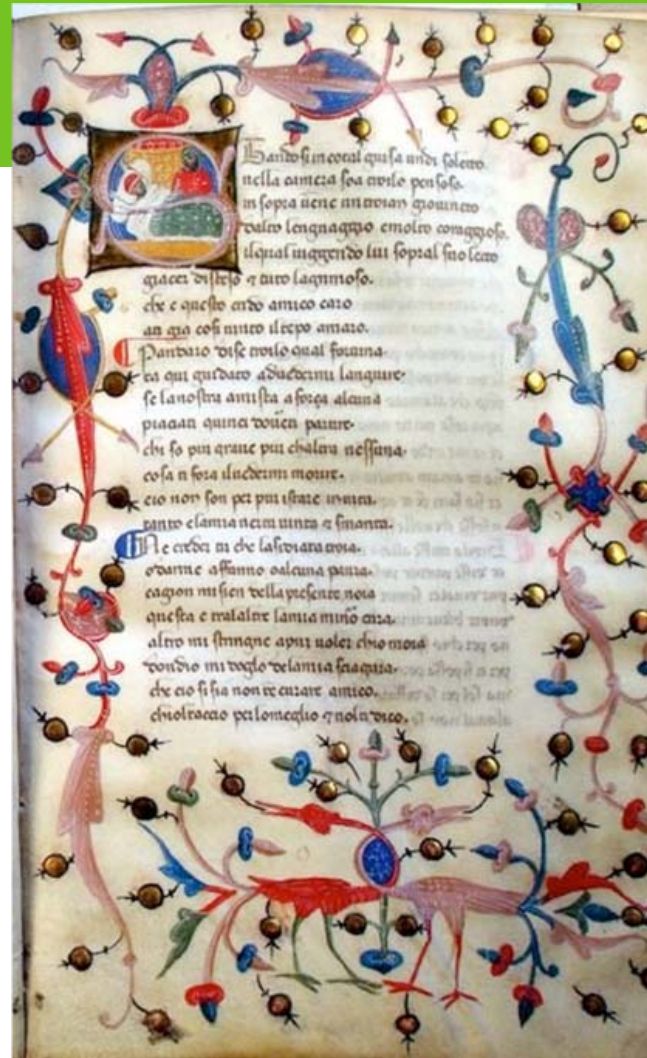 Stando si in cotal guisa undi soletto
nella camera soa troilo pensoso.
in sopra uene un troian giouineto
dalto lengnaggio e molto coraggioso.
il qual ueggendo lui sopral suo lecto
giacer disteso e tuto lagrimoso.
che e questo crido amico caro
gia cosi uinto il tepo amaro.
Pandaro disse troilo qual fortuna
ta qui guidato a uedermi languire.
se la nostra amista a força alcuna
piaciati quinci partire.
chi so piu graue piu chaltra nessuna.
cosa ti fora il uedermi morire.
cio non son per piu istare in uita.
tanto e la mia uinta e smarita.
Ne creder tu che lasediata troia.
o darme affanno o alcuna paura.
cagion mi sien della presente noia
questa e tra laltre la mia mino cura.
altro mi stringne a pur uoler chio moia
dondio mi doglo de la mia sciagura.
che cio si sia non te curare amico.
chiol taccio per lo meglio e nolti dico.